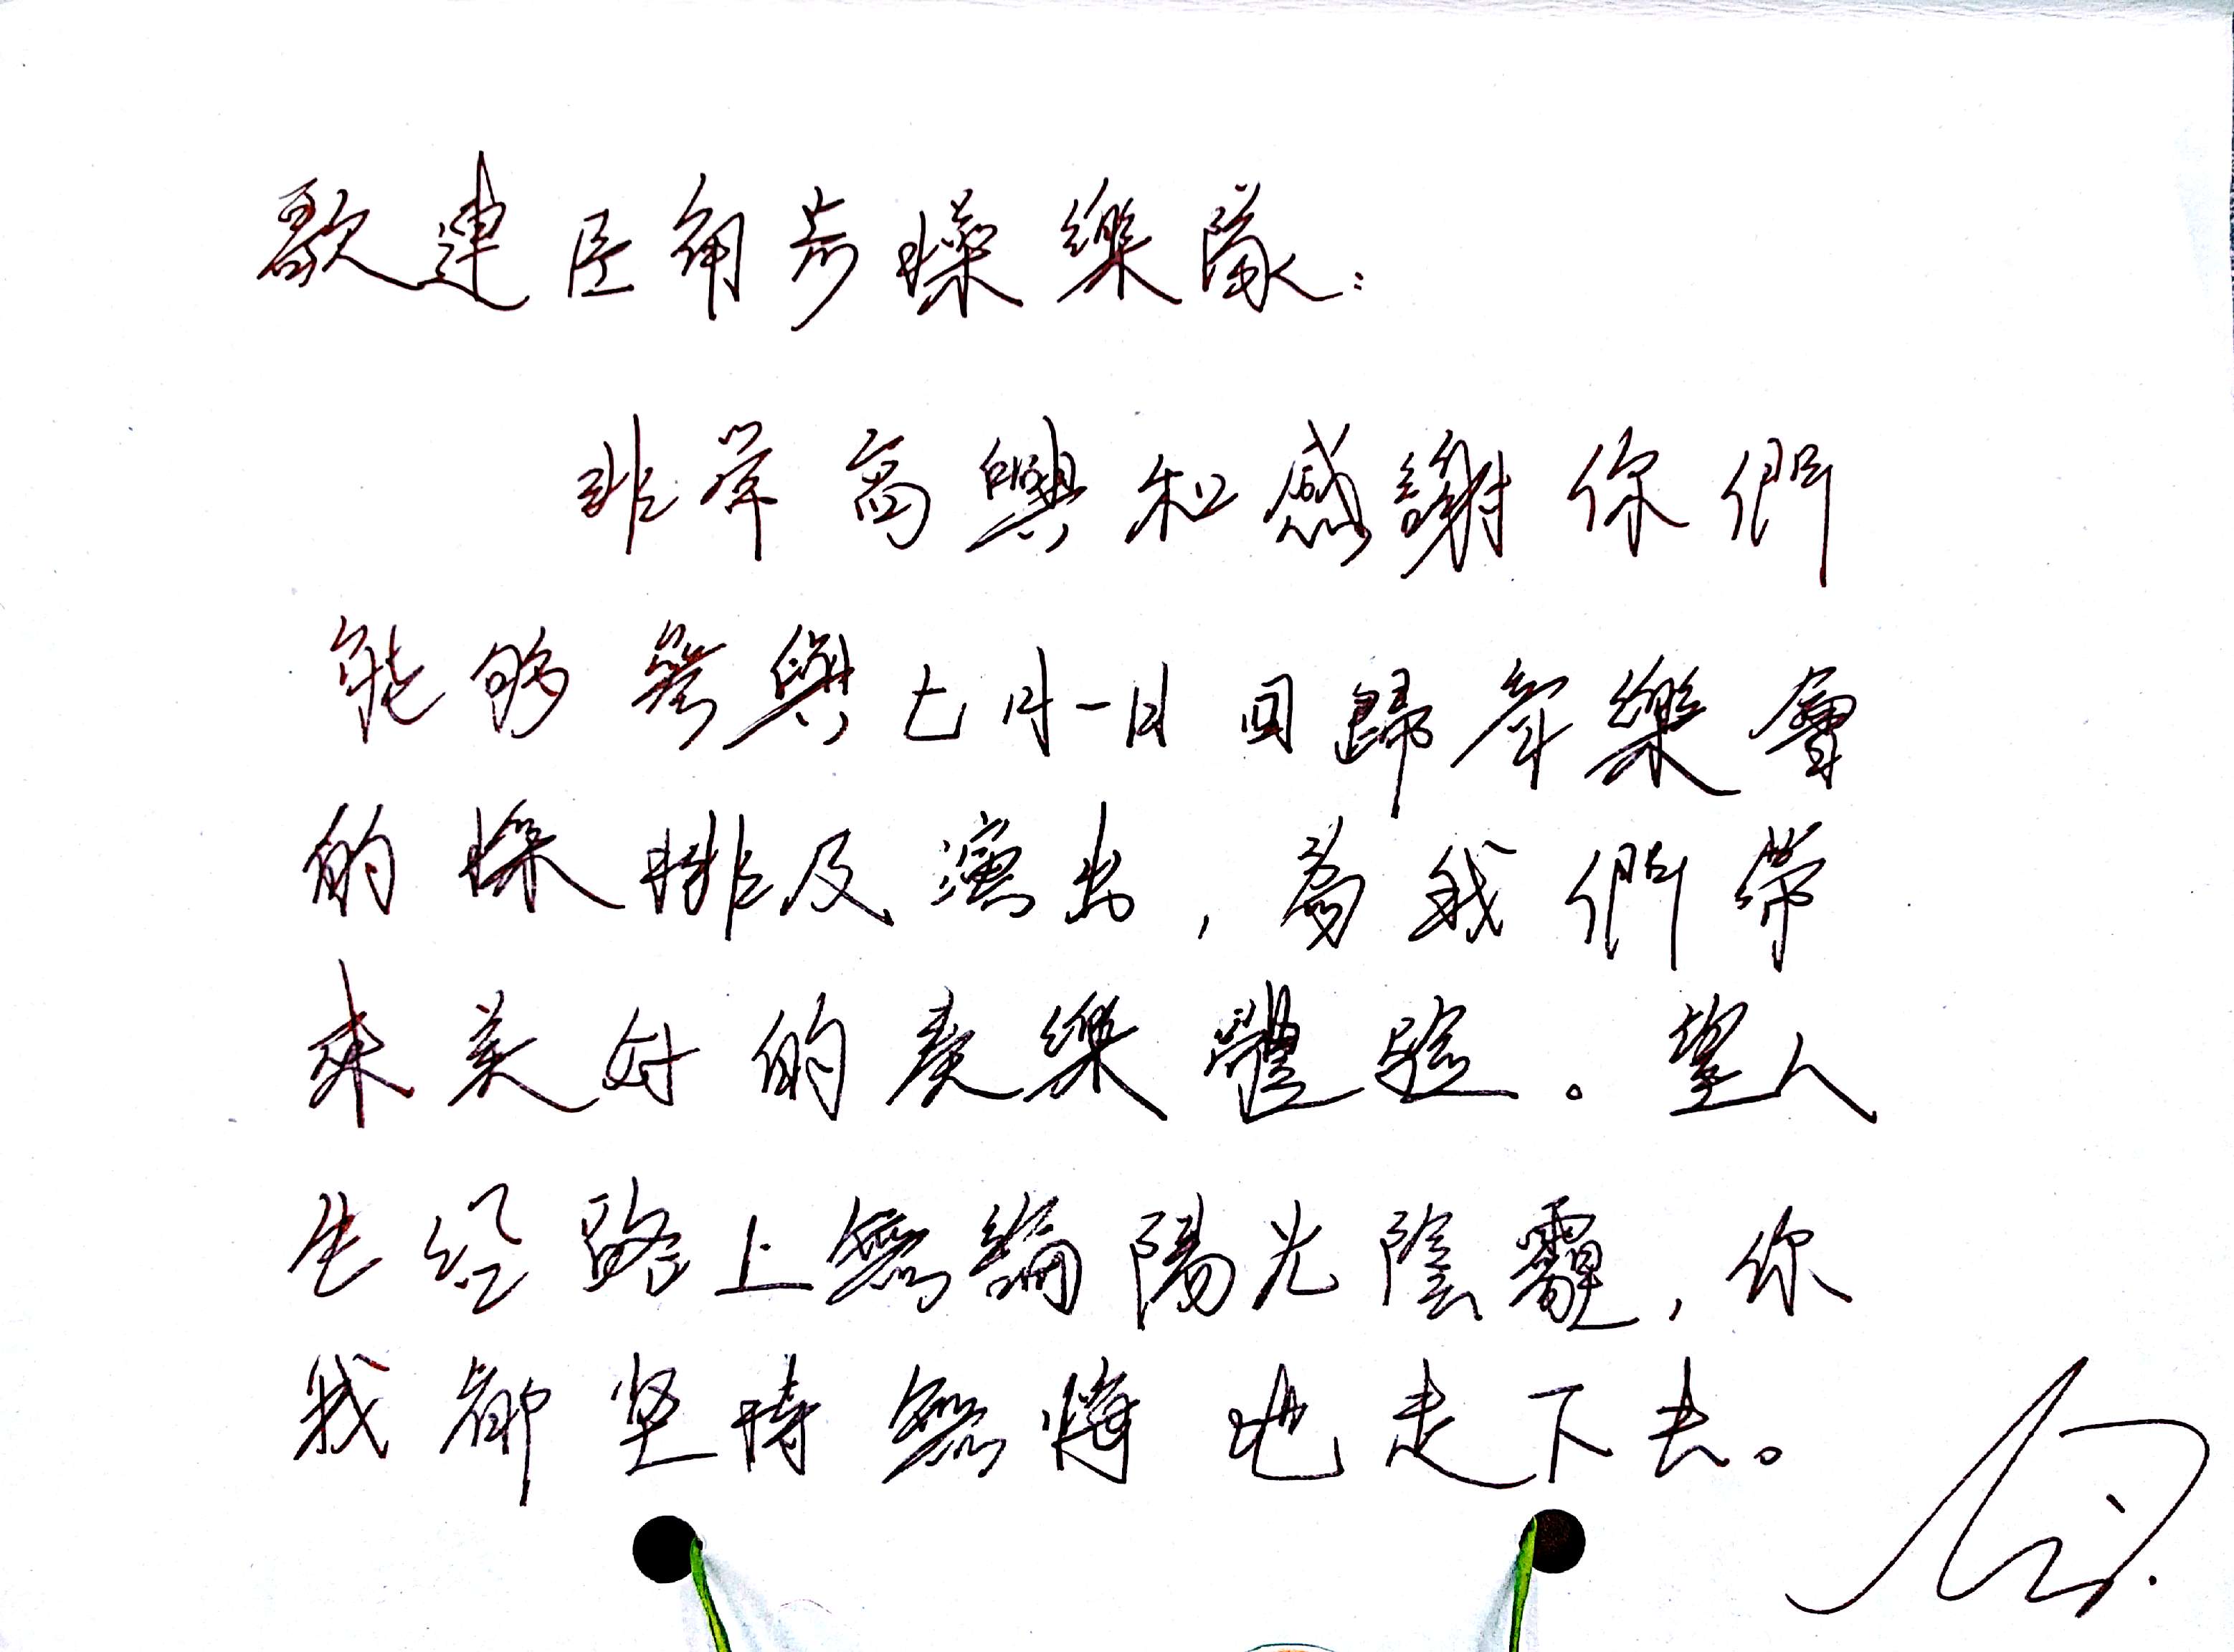 歌連臣角步操樂隊：
非常高興和感謝你們
能够參與七月一日回歸音樂會
的採排及演出，為我們帶
來美好的音樂體验。望人
生经路上無論陽光陰霾，你
我都坚持無悔地走下去。